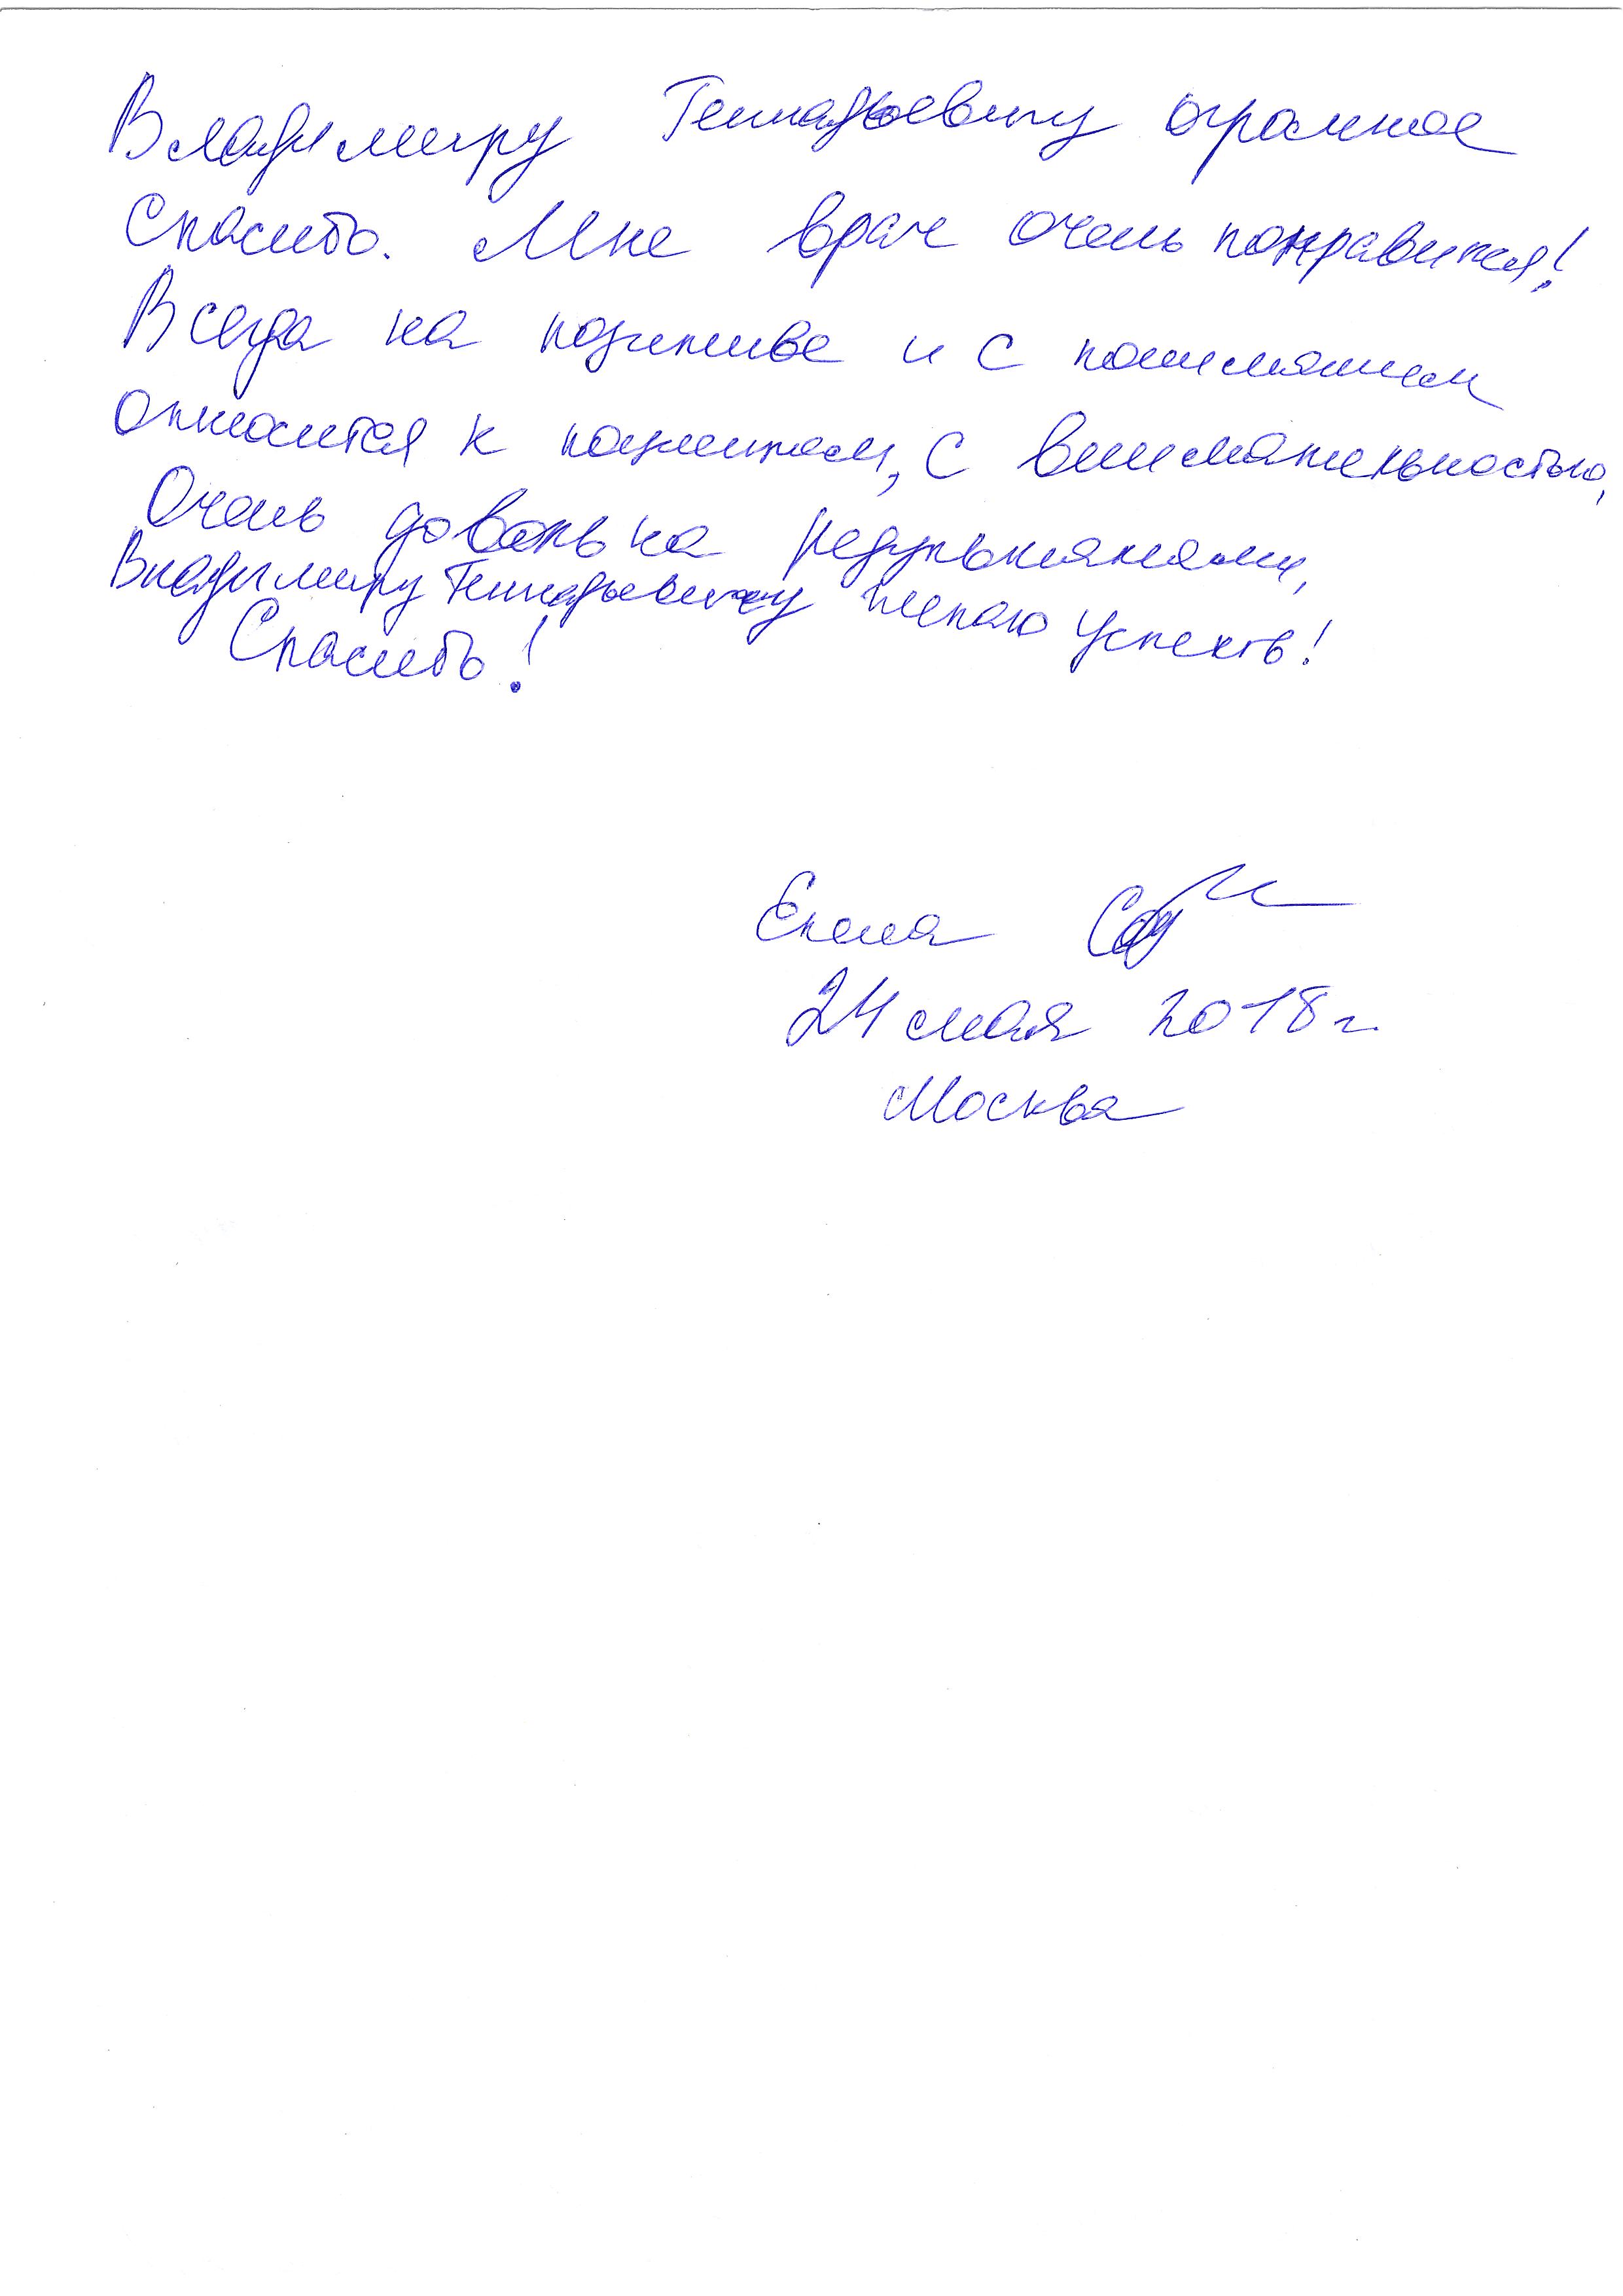 Владимиру Геннадьевичу огромное
Спасибо. Мне врач очень понравился!
Всегда на позитиве и с пониманием
относится к пациентам, с внимательностью,
Очень довольна результатами,
Владимиру Геннадьевичу желаю успехов!
Спасибо!
Елена
24 мая 2018 г.
Москва